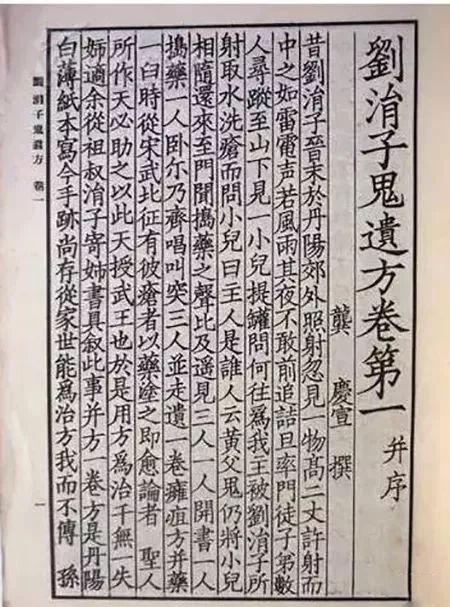 劉涓子鬼遺方卷第一 并序
龔慶宣 撰
昔劉涓子晉末於丹陽郊外照射忽見一物髙二丈許射而
中之如雷電声若風雨其夜不敢前追詰旦率門徒子弟數
人尋蹤至山下見一小兒提罐問何往爲我主被劉涓子所
射取水洗瘡而問小兒曰主人是誰人云黄父鬼仍將小兒
相隨還來至門聞搗藥之聲比及遥見三人一人開書一人
搗藥一人卧尓乃齊唱叫突三人並走遺一卷癰疽方并藥
一臼時從宋武北征有彼瘡者以藥塗之即愈論者 聖人
所作天必助之以此天授武王也於是用方爲治千無一失
姊適余從祖叔涓子寄姊書具叙此事并方一卷方是丹陽
白薄紙本寫今手跡尚存從家世能爲治方我而不傳 孫
劉涓子鬼遺方 卷一
一